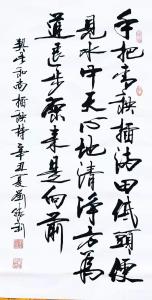 手把青秧插滿田低頭便
見水中天心地清淨方為
道退步原來是向前
契此和尚插秧詩 辛丑夏